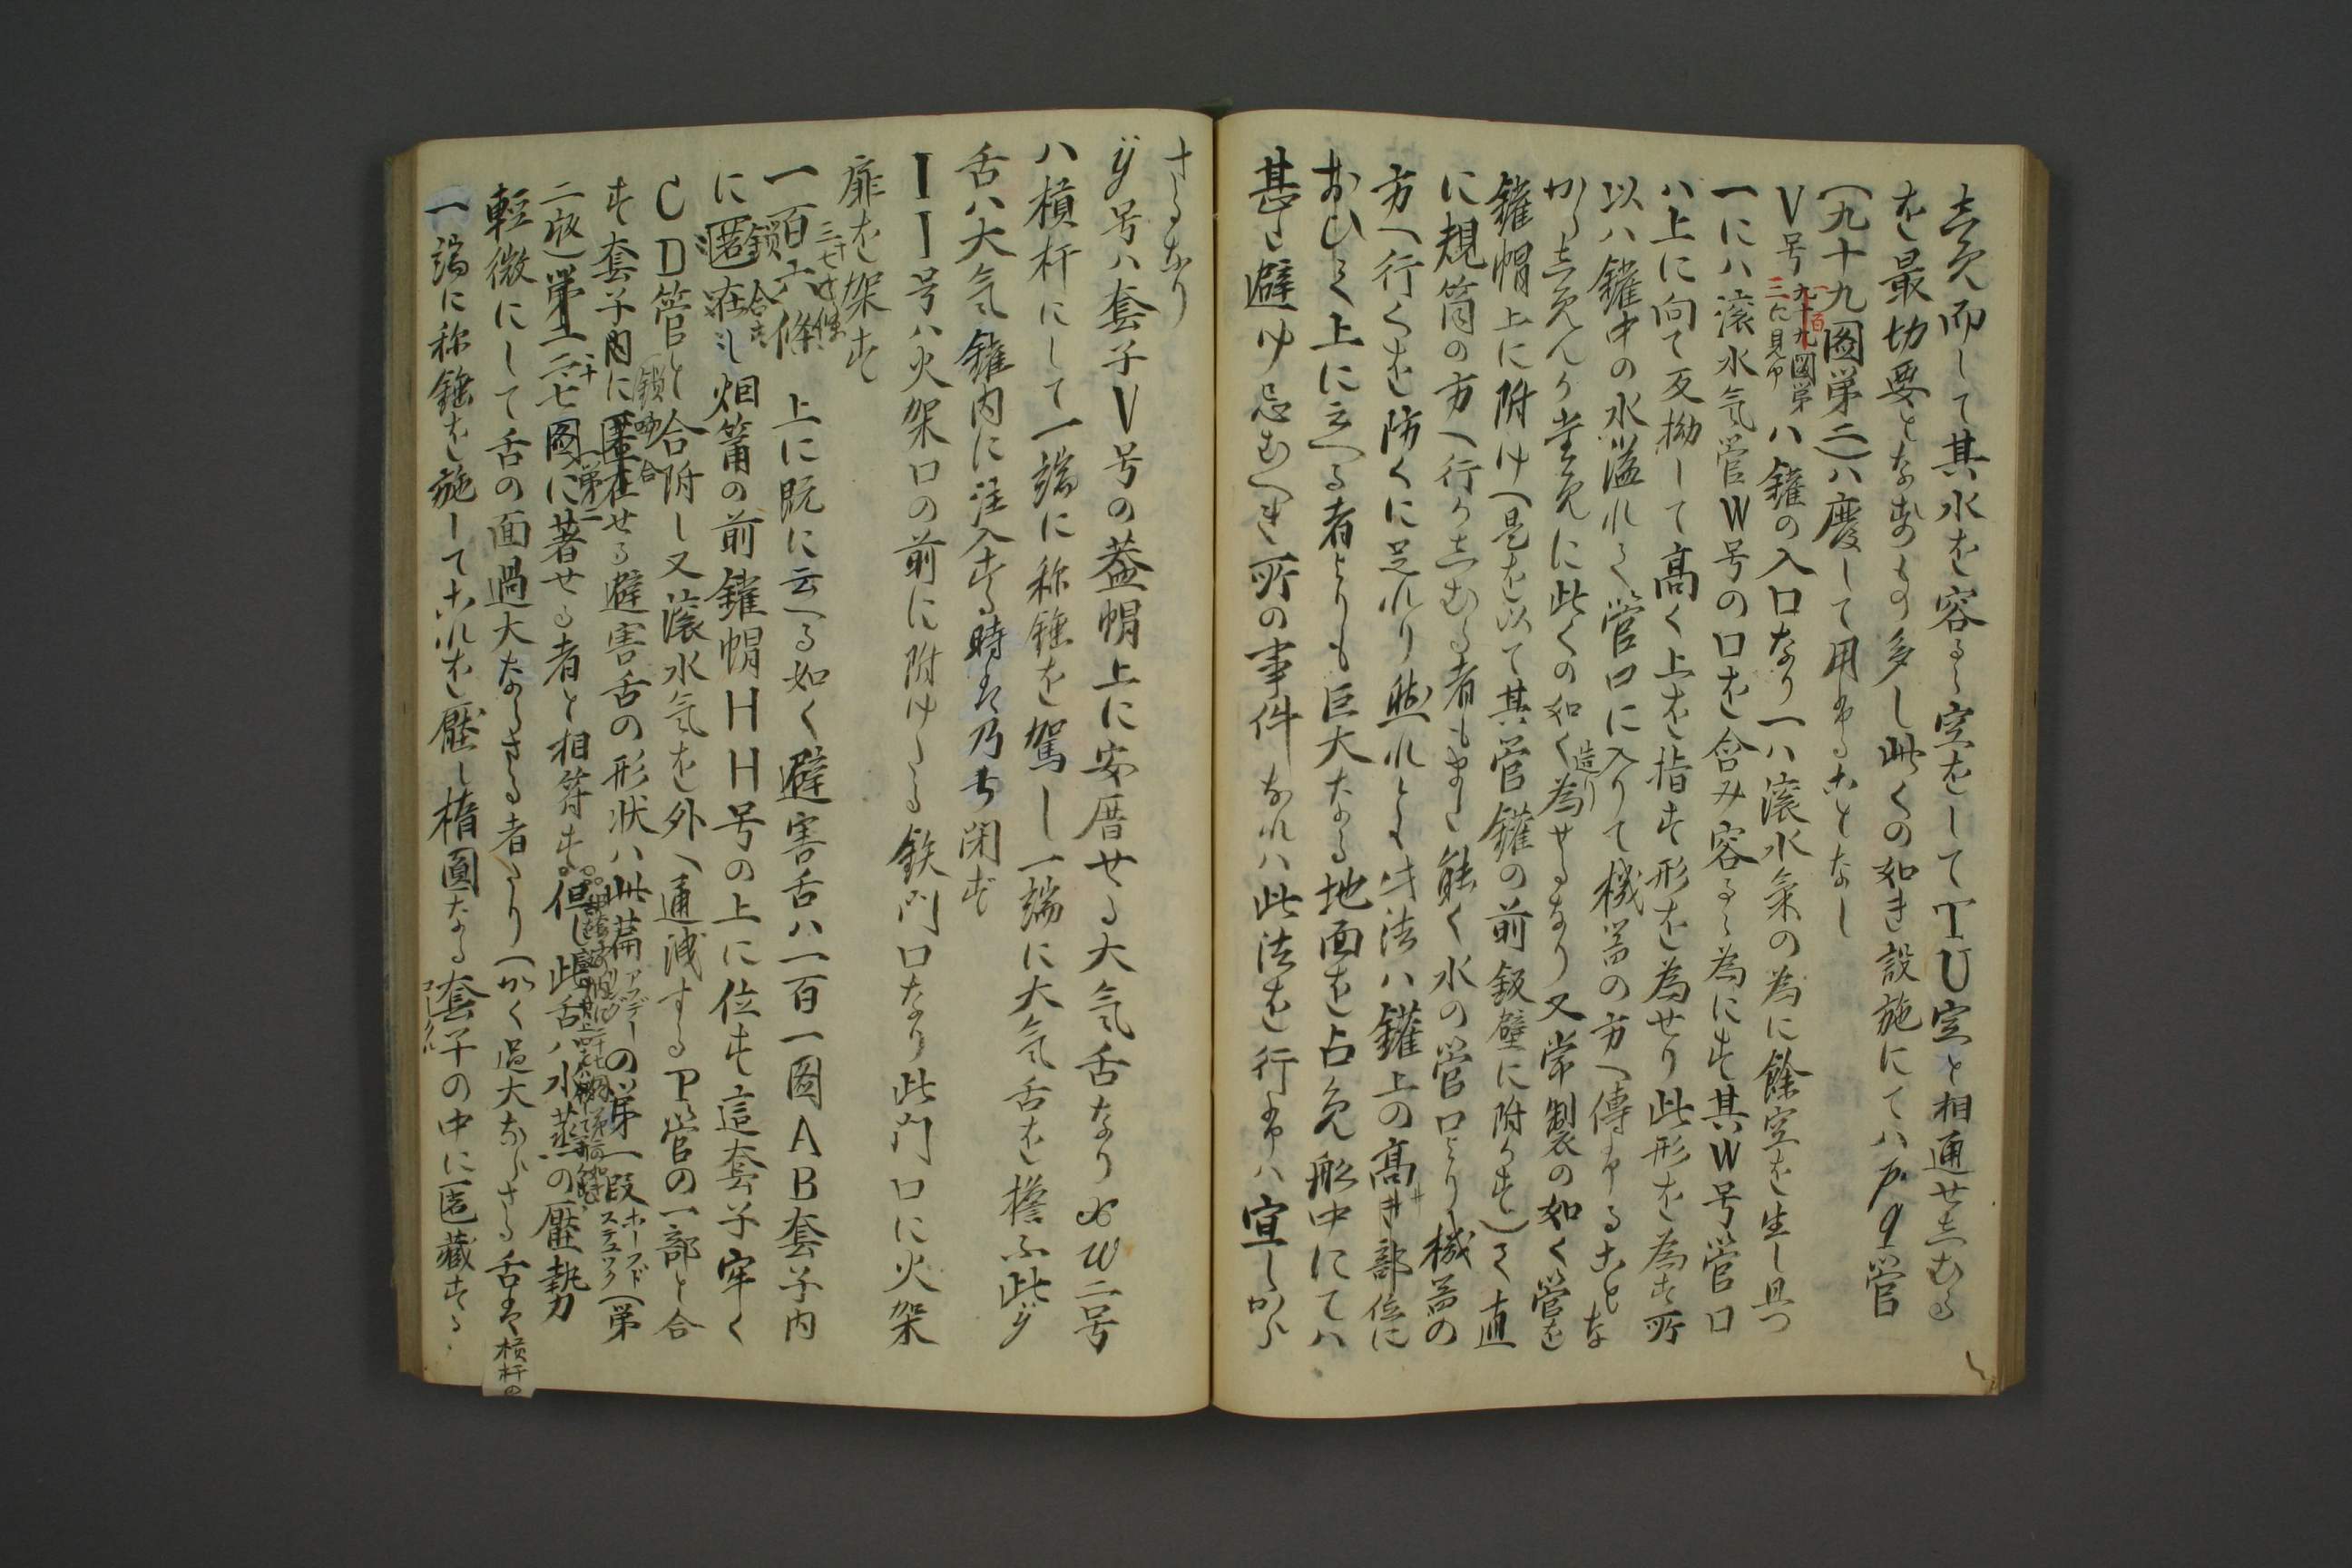 志免而して其水を容るゝ空をして T U 空と相通せ志むる
を最切要となすもの多し此くの如き設施にてハ p q 管
(九十九圖第二)ハ廢して用ゐることなし
V号 九十九圖第三に見ゆ ハ鑵の入口なり一ハ滚水氣の為に餘空を生し且つ
一にハ滚水気管W号の口を含み容るゝ為にす其W号管口
ハ上に向て反拗して高く上を指す形を為せり此形を為す所
以ハ鑵中の水溢れて管口に入りて機器の方へ傳ふることな
から志免んか為に此くの如く造り為せるなり又常製の如く管を
鑵帽上に附け(是を以て其管鑵の前鈑壁に附かす)て直
に規筒の方へ行か志むる者もまた能く水の管口より機器の
方へ行くを防くに足れり然れとも此法ハ鑵上の高き部位に
おひて上に立へる者よりも巨大なる地面を占免舩中にてハ
甚た避け忌むへき所の事件なれハ此法を行ふハ宜しから
さるなり
ÿ号ハ套子V号の葢帽上に安厝せる大気舌なり x w 二号
ハ横杆にして一端に称錘を駕し一端に大気舌を擔ふ此ÿ
舌ハ大気鑵内に注入する時は乃ち閉ず
I I号ハ火架口の前に附ける鉄門口なり此門口に火架
扉を架す
一百六條 上に既に云へる如く避害舌ハ一百一圖 A B 套子内
に匿在し烟筩の前鑵帽 H H 号の上に位す這套子牢く
C D 管と合附し又滚水気を外へ通洩する P 管の一部と合
す套子内に匿在せる避害舌の形状ハ此篇の第一段 ホーフドステュック (第
二版)第二十七圖に著せる者と相符す但し此舌ハ水蒸の壓勢
輕微にして舌の面過大ならさる者なり(かく過大ならさる舌は横杆の
一端に称錘を施してこれを壓し楕圓なる套子の中に匿藏する